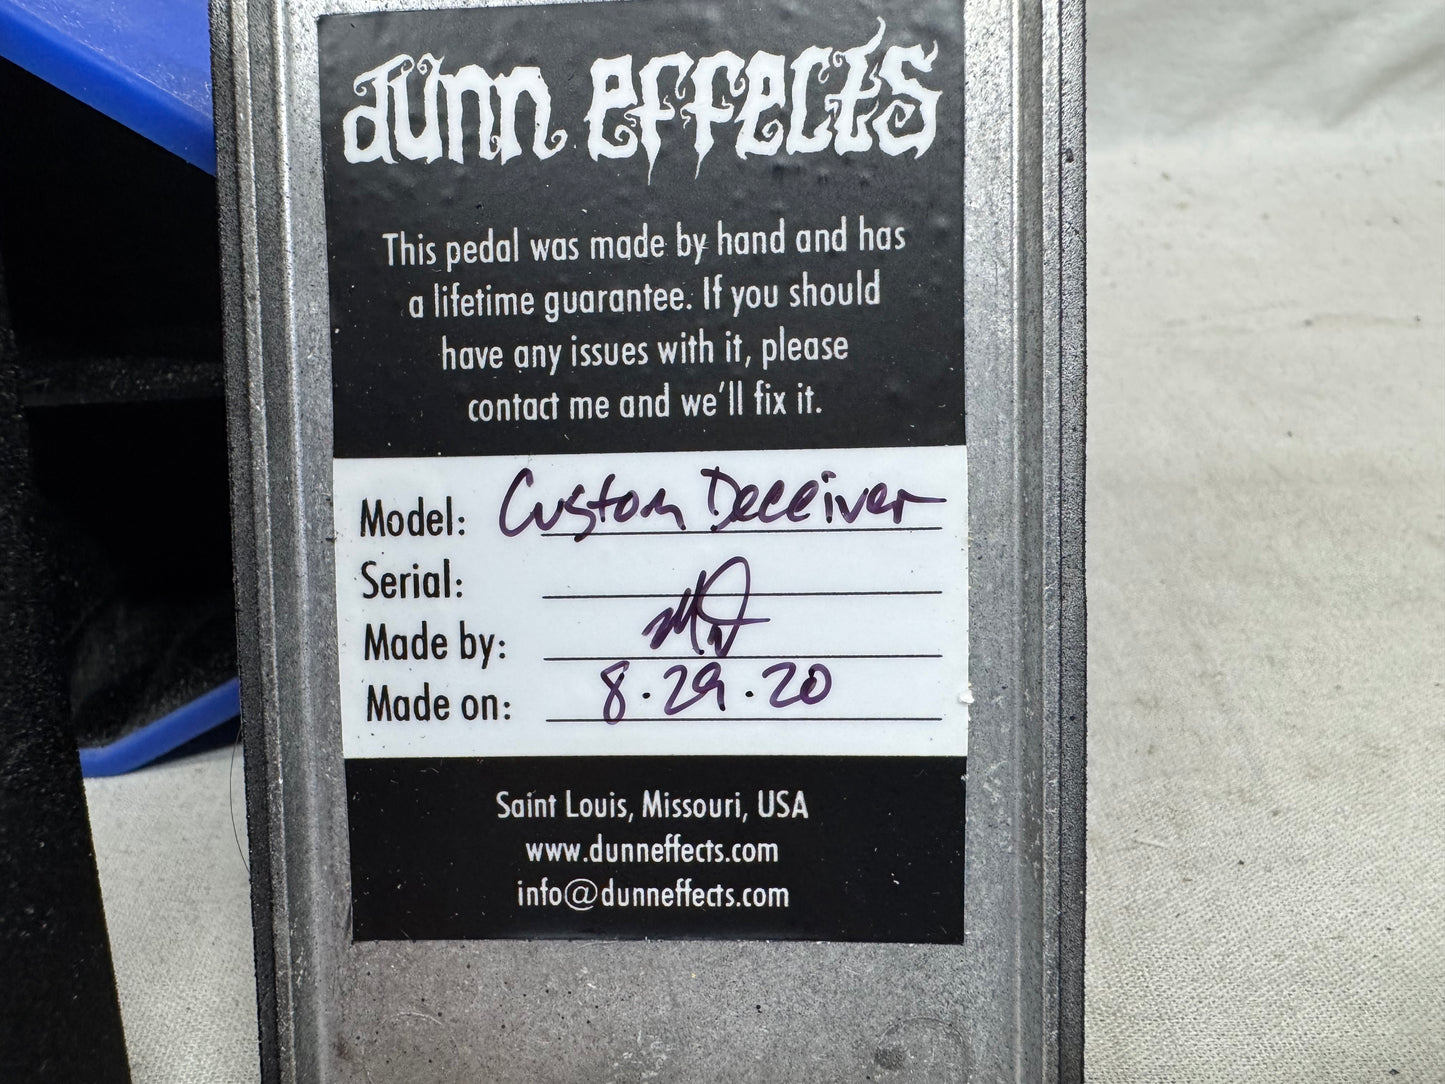 dunn effects
This pedal was made by hand and has
a lifetime guarantee. If you should
have any issues with it, please
contact me and we'll fix it.
Model: Custom Deceiver
Serial:
Made by:
Made on: 8.29.20
Saint Louis, Missouri, USA
www.dunneffects.com
info@dunneffects.com